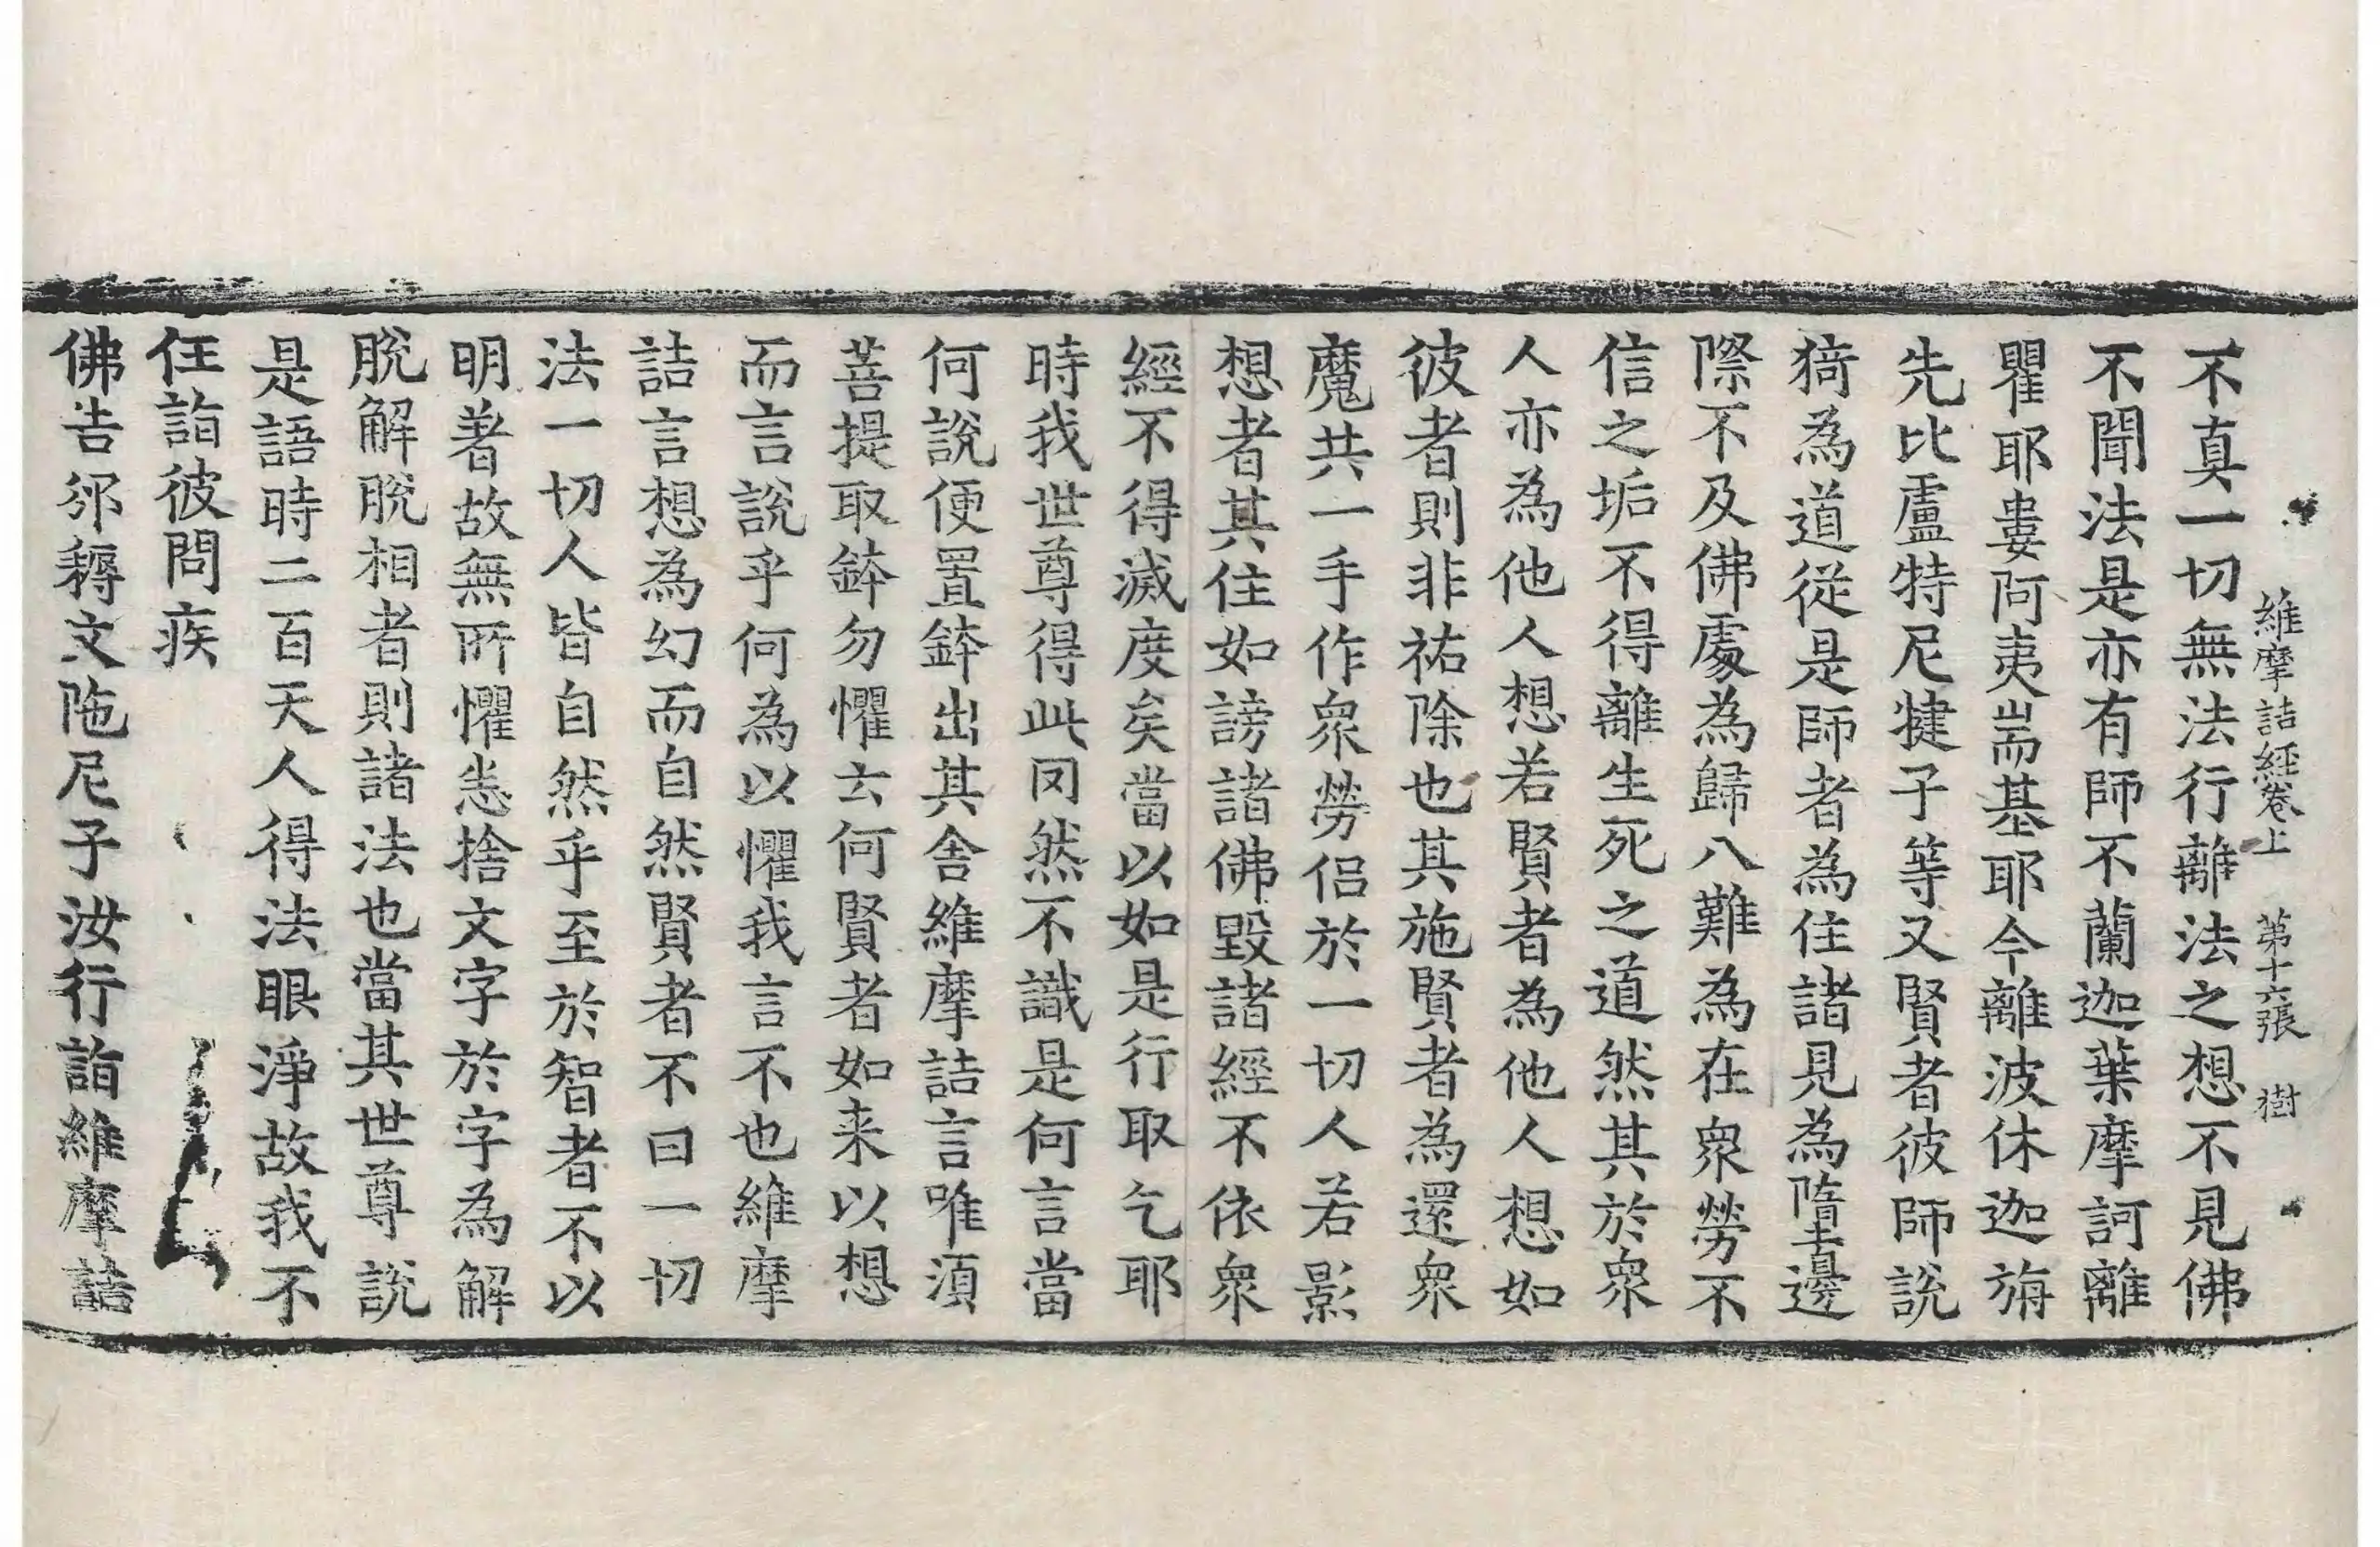 維摩詰經卷上 第十六張 樹
不真一切無法行離法之想不見佛
不聞法是亦有師不蘭迦葉摩訶離
瞿耶婁阿夷耑基耶今離波休迦旃
先比盧特尼揵子等又賢者彼師說
猗為道從是師者為住諸見為墮邊
際不及佛處為歸八難為在衆勞不
信之垢不得離生死之道然其於衆
人亦為他人想若賢者為他人想如
彼者則非祐除也其施賢者為還衆
魔共一手作衆勞侶於一切人若影
想者其住如謗諸佛毀諸經不依衆
經不得滅度矣當以如是行取乞耶
時我世尊得此罔然不識是何言當
何說便置鉢出其舍維摩詰言唯須
菩提取鉢勿懼云何賢者如来以想
而言說乎何為以懼我言不也維摩
詰言想為幻而自然賢者不曰一切
法一切人皆自然乎至於智者不以
明著故無所懼恚捨文字於字為解
脫解脫相者則諸法也當其世尊說
是語時二百天人得法眼淨故我不
任詣彼問疾
佛告邠耨文陁尼子汝行詣維摩詰